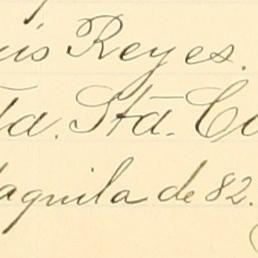 uis Reyes.
ta. Sta. Co
taquila de 82.